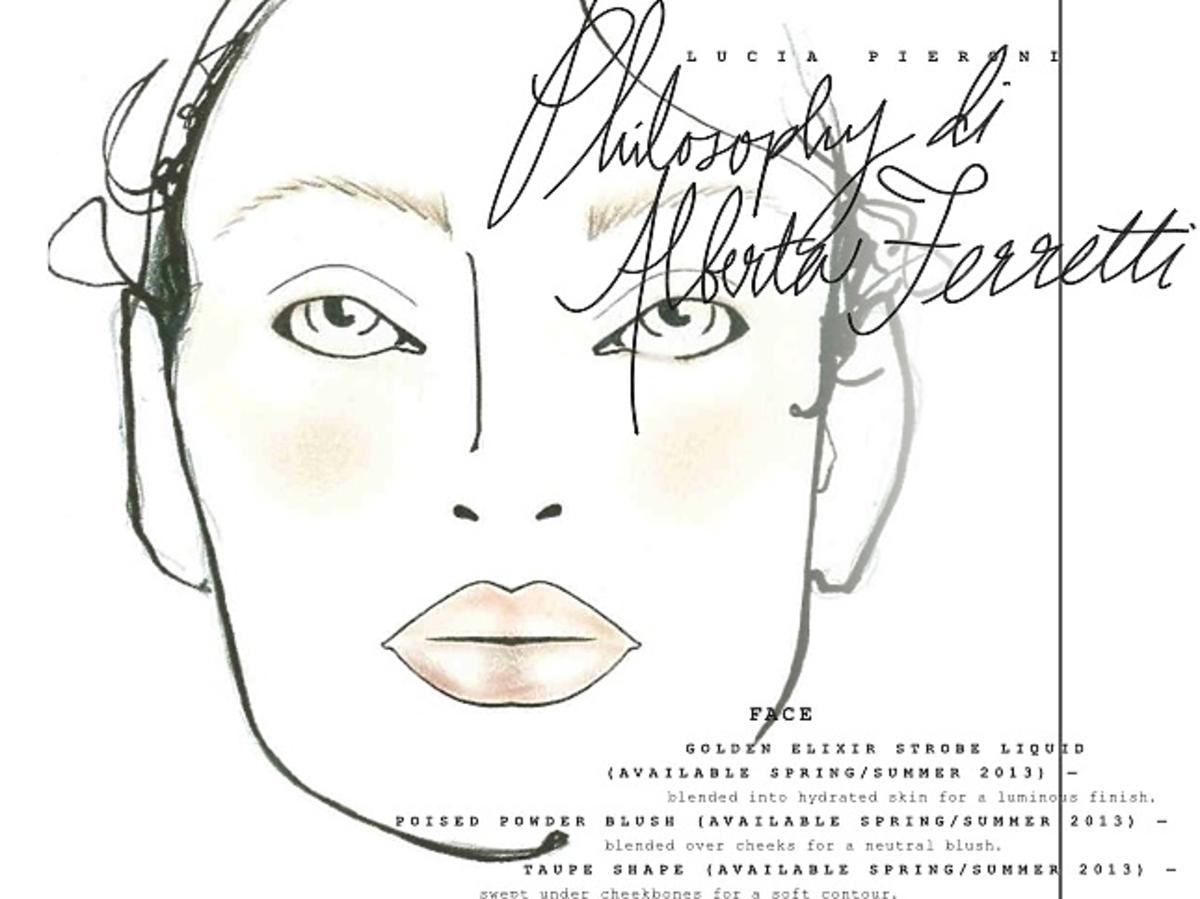 LUCIA PIERONI
Philosophy di
Alberta Ferretti
FACE
GOLDEN ELIXIR STROBE LIQUID
(AVAILABLE SPRING/SUMMER 2013) –
blended into hydrated skin for a luminous finish.
POISED POWDER BLUSH (AVAILABLE SPRING/SUMMER 2013) –
blended over cheeks for a neutral blush.
TAUPE SHAPE (AVAILABLE SPRING/SUMMER 2013) –
swept under cheekbones for a soft contour.